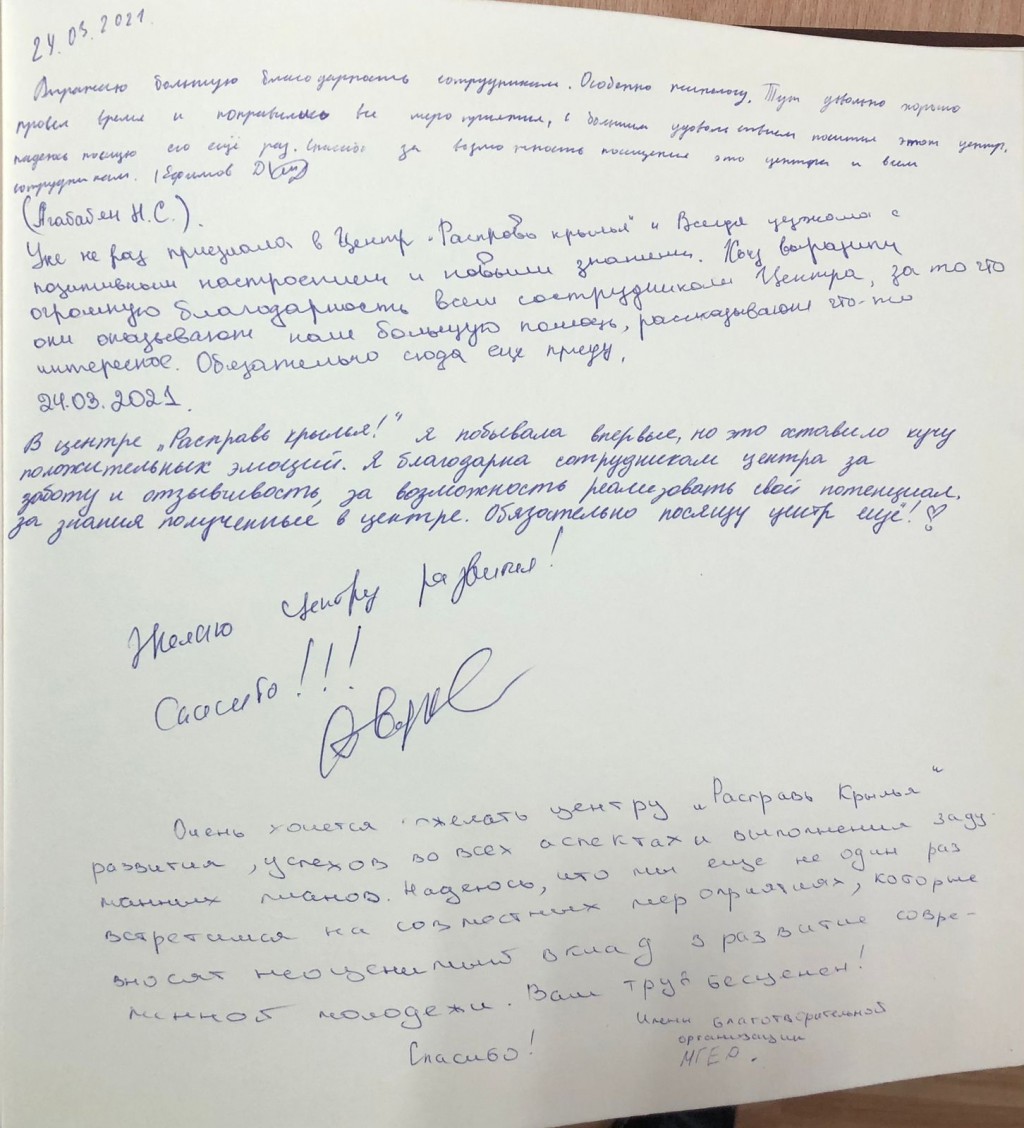 24.03.2021.
Выражаю большую благодарность сотрудникам. Особенно психологу. Тут довольно хорошо
провел время и понравились все мероприятия, с большим удовольствием посетил этот центр,
надеюсь посещу его ещё раз. Спасибо за возможность посещения это центра и всем
сотрудникам. (Ефимов Д
(Агабабян Н.С.).
Уже не раз приезжала в Центр "Расправь крылья" и Всегда уезжала с
позитивным настроением и новыми знаниями. Хочу выразить
огромную благодарность всем сострудникам Центра, за то что
они оказывают нам большую помощь, рассказывают что-то
интересное. Обязательно сюда еще приеду.
24.03.2021.
В центре „Расправь крылья!" я побывала впервые, но это оставило кучу
положительных эмоций. Я благодарна сотрудникам центра за
заботу и отзывчивость, за возможность реализовать свой потенциал,
за знания полученные в центре. Обязательно посящу центр ещё!
Желаю Центру развития!
Спасибо!!!
Очень хочется пожелать центру „Расправь Крылья"
развития, успехов во всех аспектах и выполнения заду-
манных планов. Надеюсь, что мы еще не один раз
встретимся на совместных мероприятиях, которые
вносят неоценимый вклад в развитие совре-
менной молодежи. Ваш труд бесценен!
Спасибо!
Имени благотворительной
организации
МГЕР.